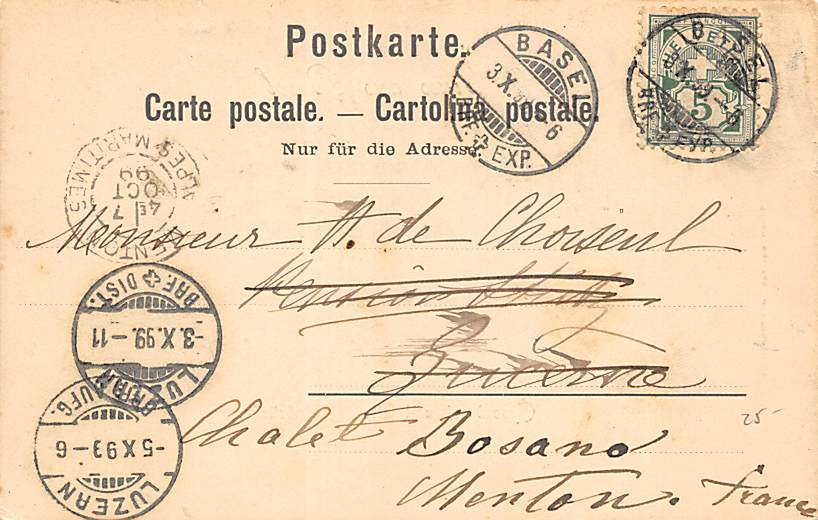 Postkarte.
Carte postale. — Cartolina postale.
Nur für die Adresse.
BASEL
3.X.
BRF. EXP.
6
5
MENTON
ALPES MARITIMES
4E 7
OCT
99
Monsieur H. de Choiseul
Pension
Lucerne
Chalet Bosano
Menton. France
25-
BRF DIST.
-3.X.99.-11
LUZERN
LUZERN
AUFG.
-5.X.99-6